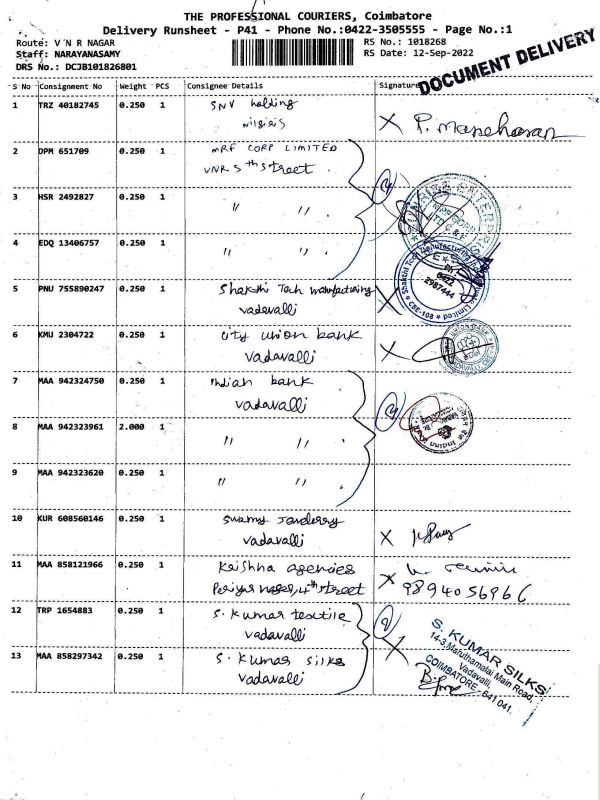 THE PROFESSIONAL COURIERS, Coimbatore
Delivery Runsheet - P41 - Phone No.:0422-3505555 - Page No.:1
Route: V N R NAGAR
RS No.: 1018268
Staff: NARAYANASAMY
RS Date: 12-Sep-2022
DRS No.: DCJB101826801
DOCUMENT DELIVERY
S No Consignment No Weight PCS Consignee Details Signature
1 TRZ 40182745 0.250 1 SNV holding
X P. Manoharan
2 DPM 651709 0.250 1 MRF CORP LIMITED
VNR 5th street
3 HSR 2492827 0.250 1 〃 〃.
4 EDQ 13406757 0.250 1 〃 〃.
5 PNU 755890247 0.250 1 Shakthi Tech manufacturing X
vadavalli
0422
2987444
6 KMU 2304722 0.250 1 city union bank X
vadavalli
7 MAA 942324750 0.250 1 Indian bank
vadavalli
8 MAA 942323961 2.000 1 〃 〃.
9 MAA 942323620 0.250 1 〃 〃.
10 KUR 608560146 0.250 1 Swamy
vadavalli X
11 MAA 858121966 0.250 1 Krishna agencies
Periyar nager, 4th street X 9894056966
12 TRP 1654883 0.250 1 S. Kumar textile
vadavalli X
13 MAA 858297342 0.250 1 S. Kumar Silks
vadavalli
S. KUMAR SILKS
14-3 Maruthamalai Main Road,
Vadavalli,
COIMBATORE - 641 041.